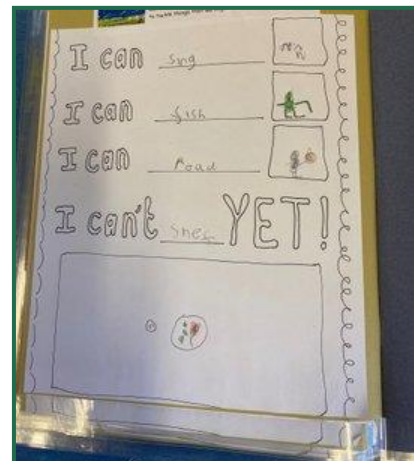 I can sing
I can fish
I can Road
I can't YET!